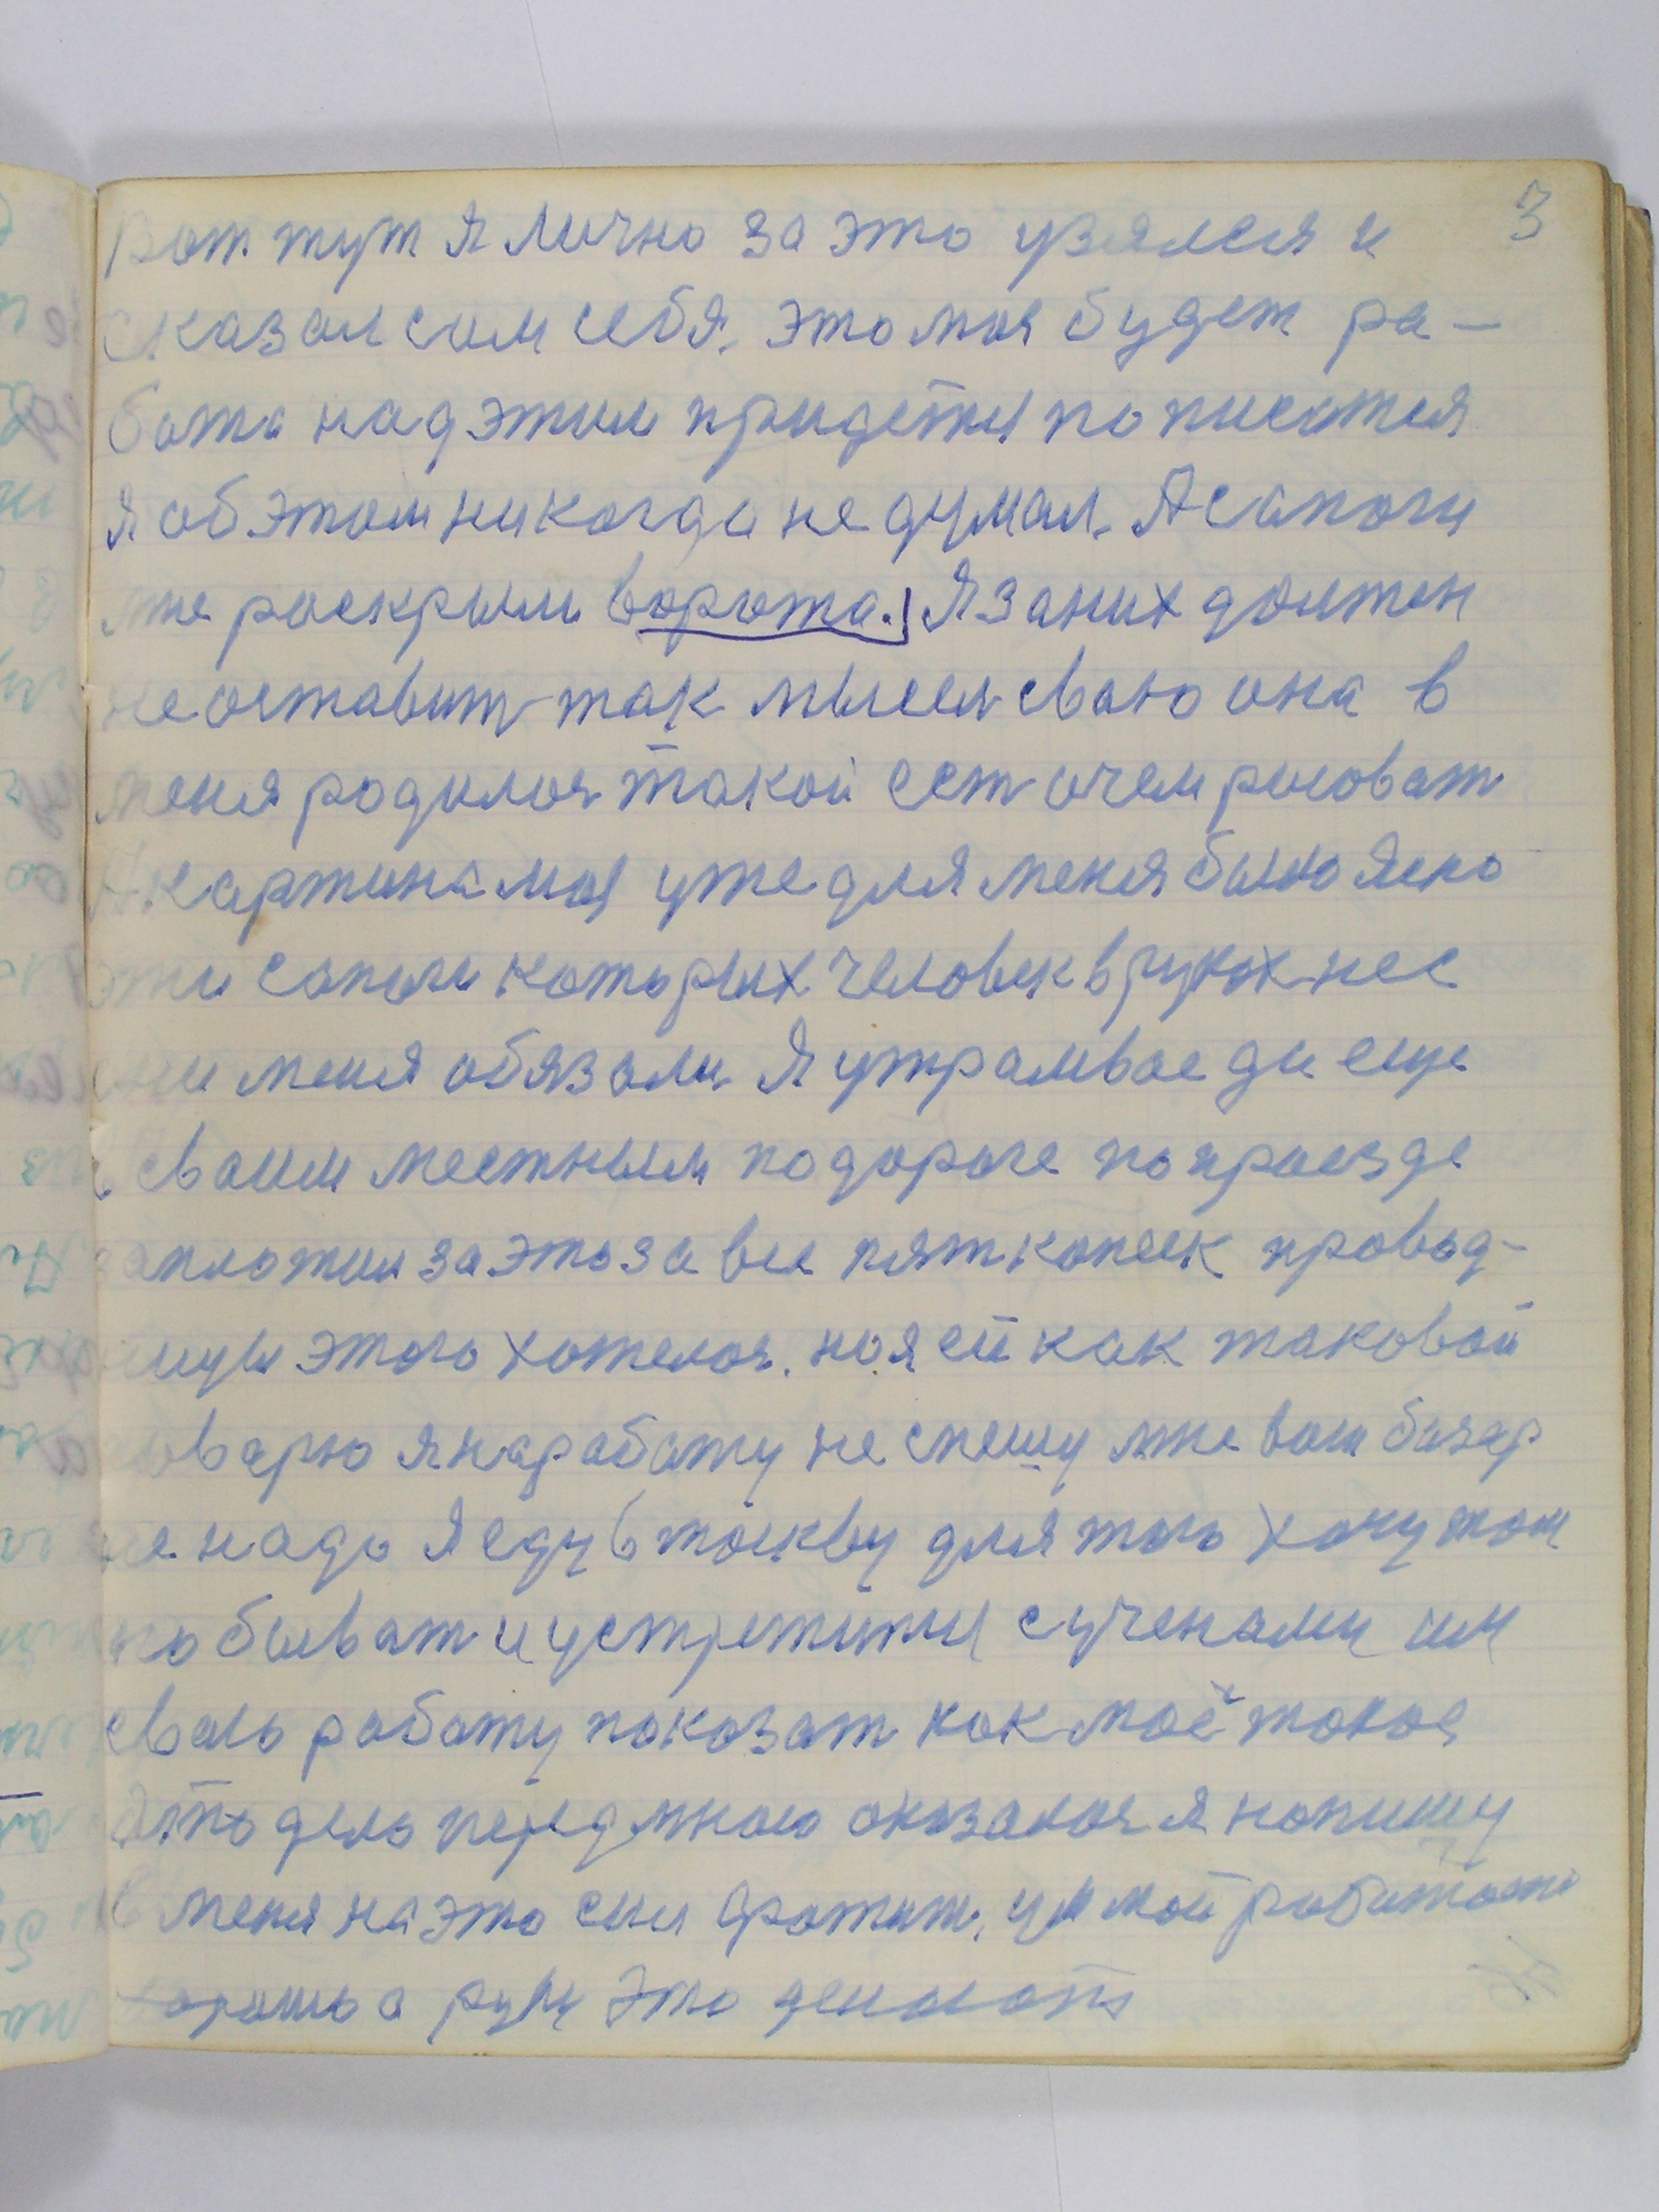 3
Вот тут я лично за это узялся и
сказал сам себя. это моя будет ра-
бота над этим придется пописатся
я об этом никогда не думал. А сапоги
мне раскрыли ворота. Я за них должен
не оставит так мысел сваю она в
меня родилоя такой ест очем рисоват
А картина моя уже для меня было ясно
эти сапоги которых человек в руках нес
они меня обязали. Я утрамвае да еще
в своим местным подороге по проезде
заплотил за это за все пят копеек провод-
ницы этого хотелоя. но я ей как таковой
говарю я на работу не спешу мне ваш базар
не надо Я еду в москву для того хочу там
побыват и устретится сученами им
сваю работу показат как моё такое
Это дело передмною оказалоя я напишу
В меня на это сил фатит, ум мой работает
хорошо а руки это делают